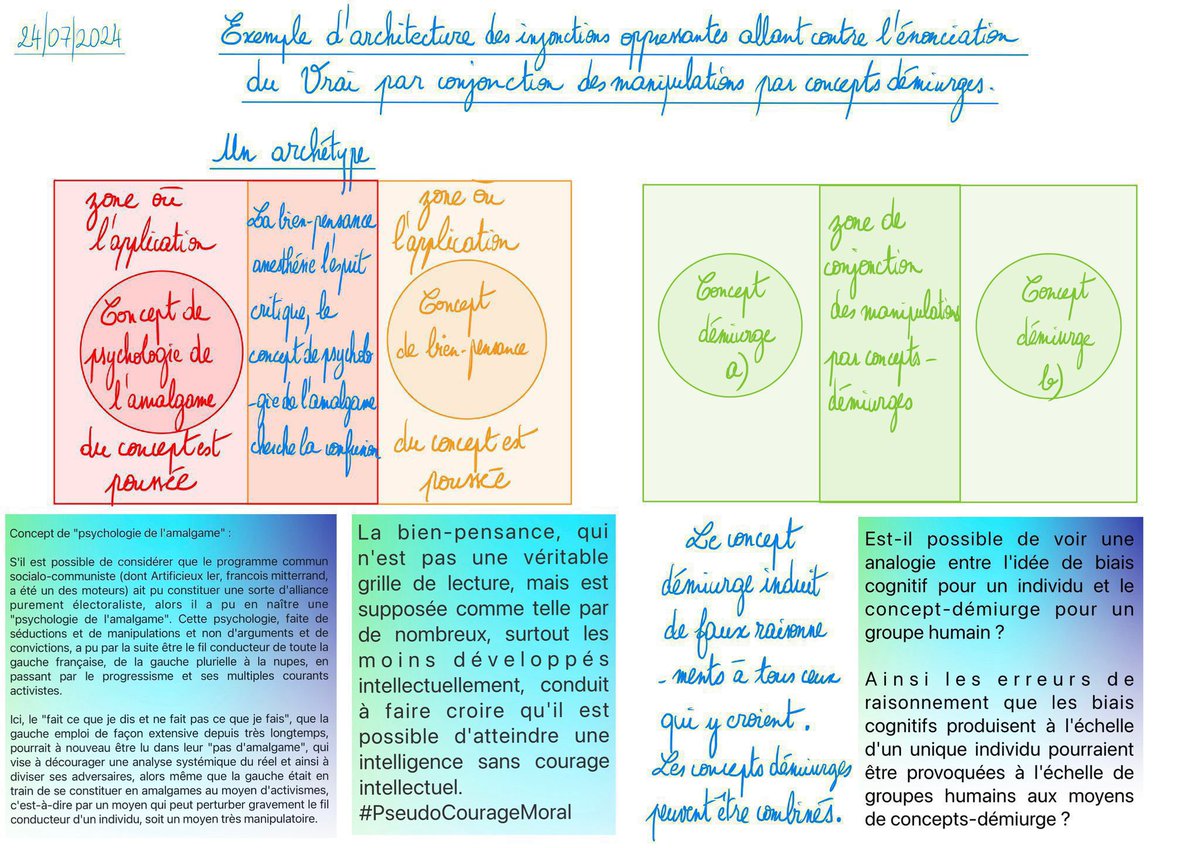 24/07/2024
Exemple d'architecture des injonctions oppressantes allant contre l'énonciation
du Vrai par conjonction des manipulations par concepts démiurges.
Un archétype
zone où
l'application
Concept de
psychologie de
l'amalgame
du concept est
poussée
La bien-pensance
anesthésie l'esprit
critique, le
concept de psycholo
-gie de l'amalgame
cherche la confusion
zone où
l'application
Concept
de bien-pensance
du concept est
poussée
Concept
démiurge
a)
zone de
conjonction
des manipulations
par concepts-
démiurges
Concept
démiurge
b)
Concept de "psychologie de l'amalgame" :
S'il est possible de considérer que le programme commun
socialo-communiste (dont Artificieux Ier, francois mitterrand,
a été un des moteurs) ait pu constituer une sorte d'alliance
purement électoraliste, alors il a pu en naître une
"psychologie de l'amalgame". Cette psychologie, faite de
séductions et de manipulations et non d'arguments et de
convictions, a pu par la suite être le fil conducteur de toute la
gauche française, de la gauche plurielle à la nupes, en
passant par le progressisme et ses multiples courants
activistes.
Ici, le "fait ce que je dis et ne fait pas ce que je fais", que la
gauche emploi de façon extensive depuis très longtemps,
pourrait à nouveau être lu dans leur "pas d'amalgame", qui
vise à décourager une analyse systémique du réel et ainsi à
diviser ses adversaires, alors même que la gauche était en
train de se constituer en amalgames au moyen d'activismes,
c'est-à-dire par un moyen qui peut perturber gravement le fil
conducteur d'un individu, soit un moyen très manipulatoire.
La bien-pensance, qui
n'est pas une véritable
grille de lecture, mais est
supposée comme telle par
de nombreux, surtout les
moins développés
intellectuellement, conduit
à faire croire qu'il est
possible d'atteindre une
intelligence sans courage
intellectuel.
#PseudoCourageMoral
Le concept
démiurge induit
de faux raisonne
-ments à tous ceux
qui y croient.
Les concepts démiurges
peuvent être combinés.
Est-il possible de voir une
analogie entre l'idée de biais
cognitif pour un individu et le
concept-démiurge pour un
groupe humain ?
Ainsi les erreurs de
raisonnement que les biais
cognitifs produisent à l'échelle
d'un unique individu pourraient
être provoquées à l'échelle de
groupes humains aux moyens
de concepts-démiurge ?